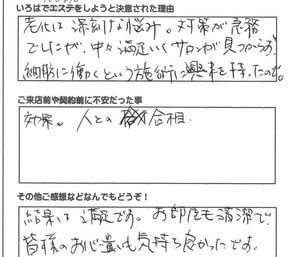 いろはでエステをしようと決意された理由
老化は深刻な悩み。対策が急務
でしたが、中々満足いくサロンが見つからず、
細胞に働くという施術に興味を持ったので。
ご来店前や契約前に不安だった事
効果。人との 合相。
その他ご感想などなんでもどうぞ！
結果は満足です。お部屋も清潔で、
皆様のお心遣いも気持ち良かったです。